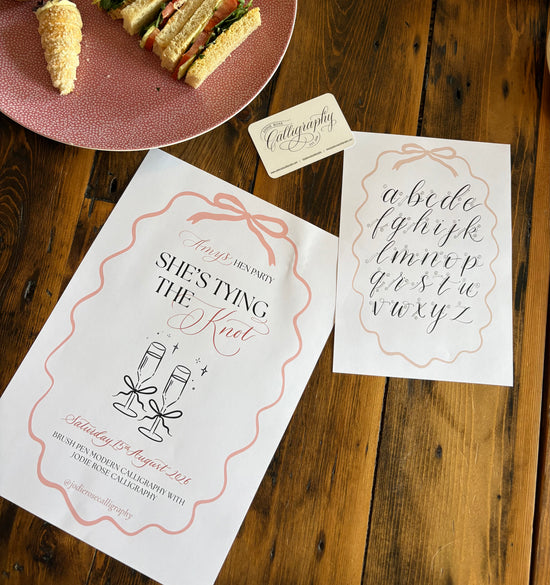 Jodie Rose
Calligraphy
Amy's HEN PARTY
SHE'S TYING
THE Knot
Saturday 15th August 2026
BRUSH PEN MODERN CALLIGRAPHY WITH
JODIE ROSE CALLIGRAPHY
@jodierosecalligraphy
a b c d e
f g h i j k
l m n o p
q r s t u
v w x y z